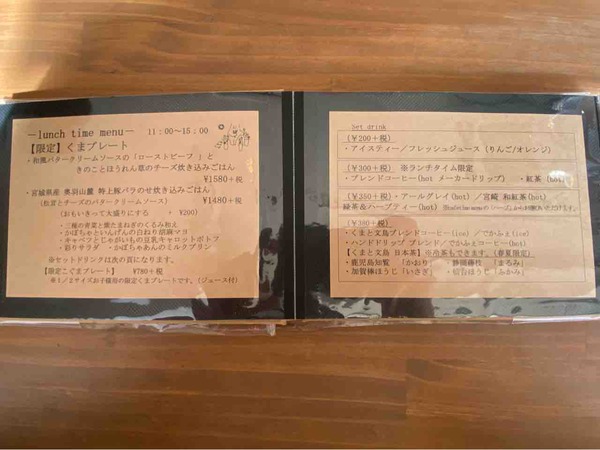 －lunch time menu－ 11：00～15：00
【限定】くまプレート
・和風バタークリームソースの「ローストビーフ」と
きのことほうれん草のチーズ炊き込みごはん
¥1580＋税
・宮城県産 奥羽山麓 特上豚バラのせ炊き込みごはん
¥1480＋税
（おもいきって大盛りにする ・ ¥200）
・三種の青菜と雲たまねぎのくるみ和え
・かぼちゃといんげんの白ねり胡麻マヨ
・キャベツとじゃがいもの豆乳キャロットポトフ
・彩りサラダ ・かぼちゃあんのミルクプリン
※セットドリンクは次の頁になります。
【限定こぐまプレート】 ¥780＋税
※１/２サイズお子様用の限定くまプレートです。（ジュース付）
Set drink
（¥200＋税）
・アイスティー／フレッシュジュース（りんご/オレンジ）
（¥300＋税） ※ランチタイム限定
・ブレンドコーヒー(hot メーカードリップ) ・紅茶（hot）
（¥350＋税）・アールグレイ(hot) ／宮崎 和紅茶(hot)
緑茶＆ハーブティー(hot)
（¥380＋税）
・くまと文鳥ブレンドコーヒー(ice) ／でかふぇ(ice)
・ハンドドリップ ブレンド／でかふぇコーヒー(hot)
【くまと文鳥 日本茶】※冷茶もできます。（春夏限定）
・鹿児島知覧 「かおり」 静岡藤枝 「まろみ」
・加賀棒ほうじ「いさぎ」 ・仙台ほうじ「ふかみ」